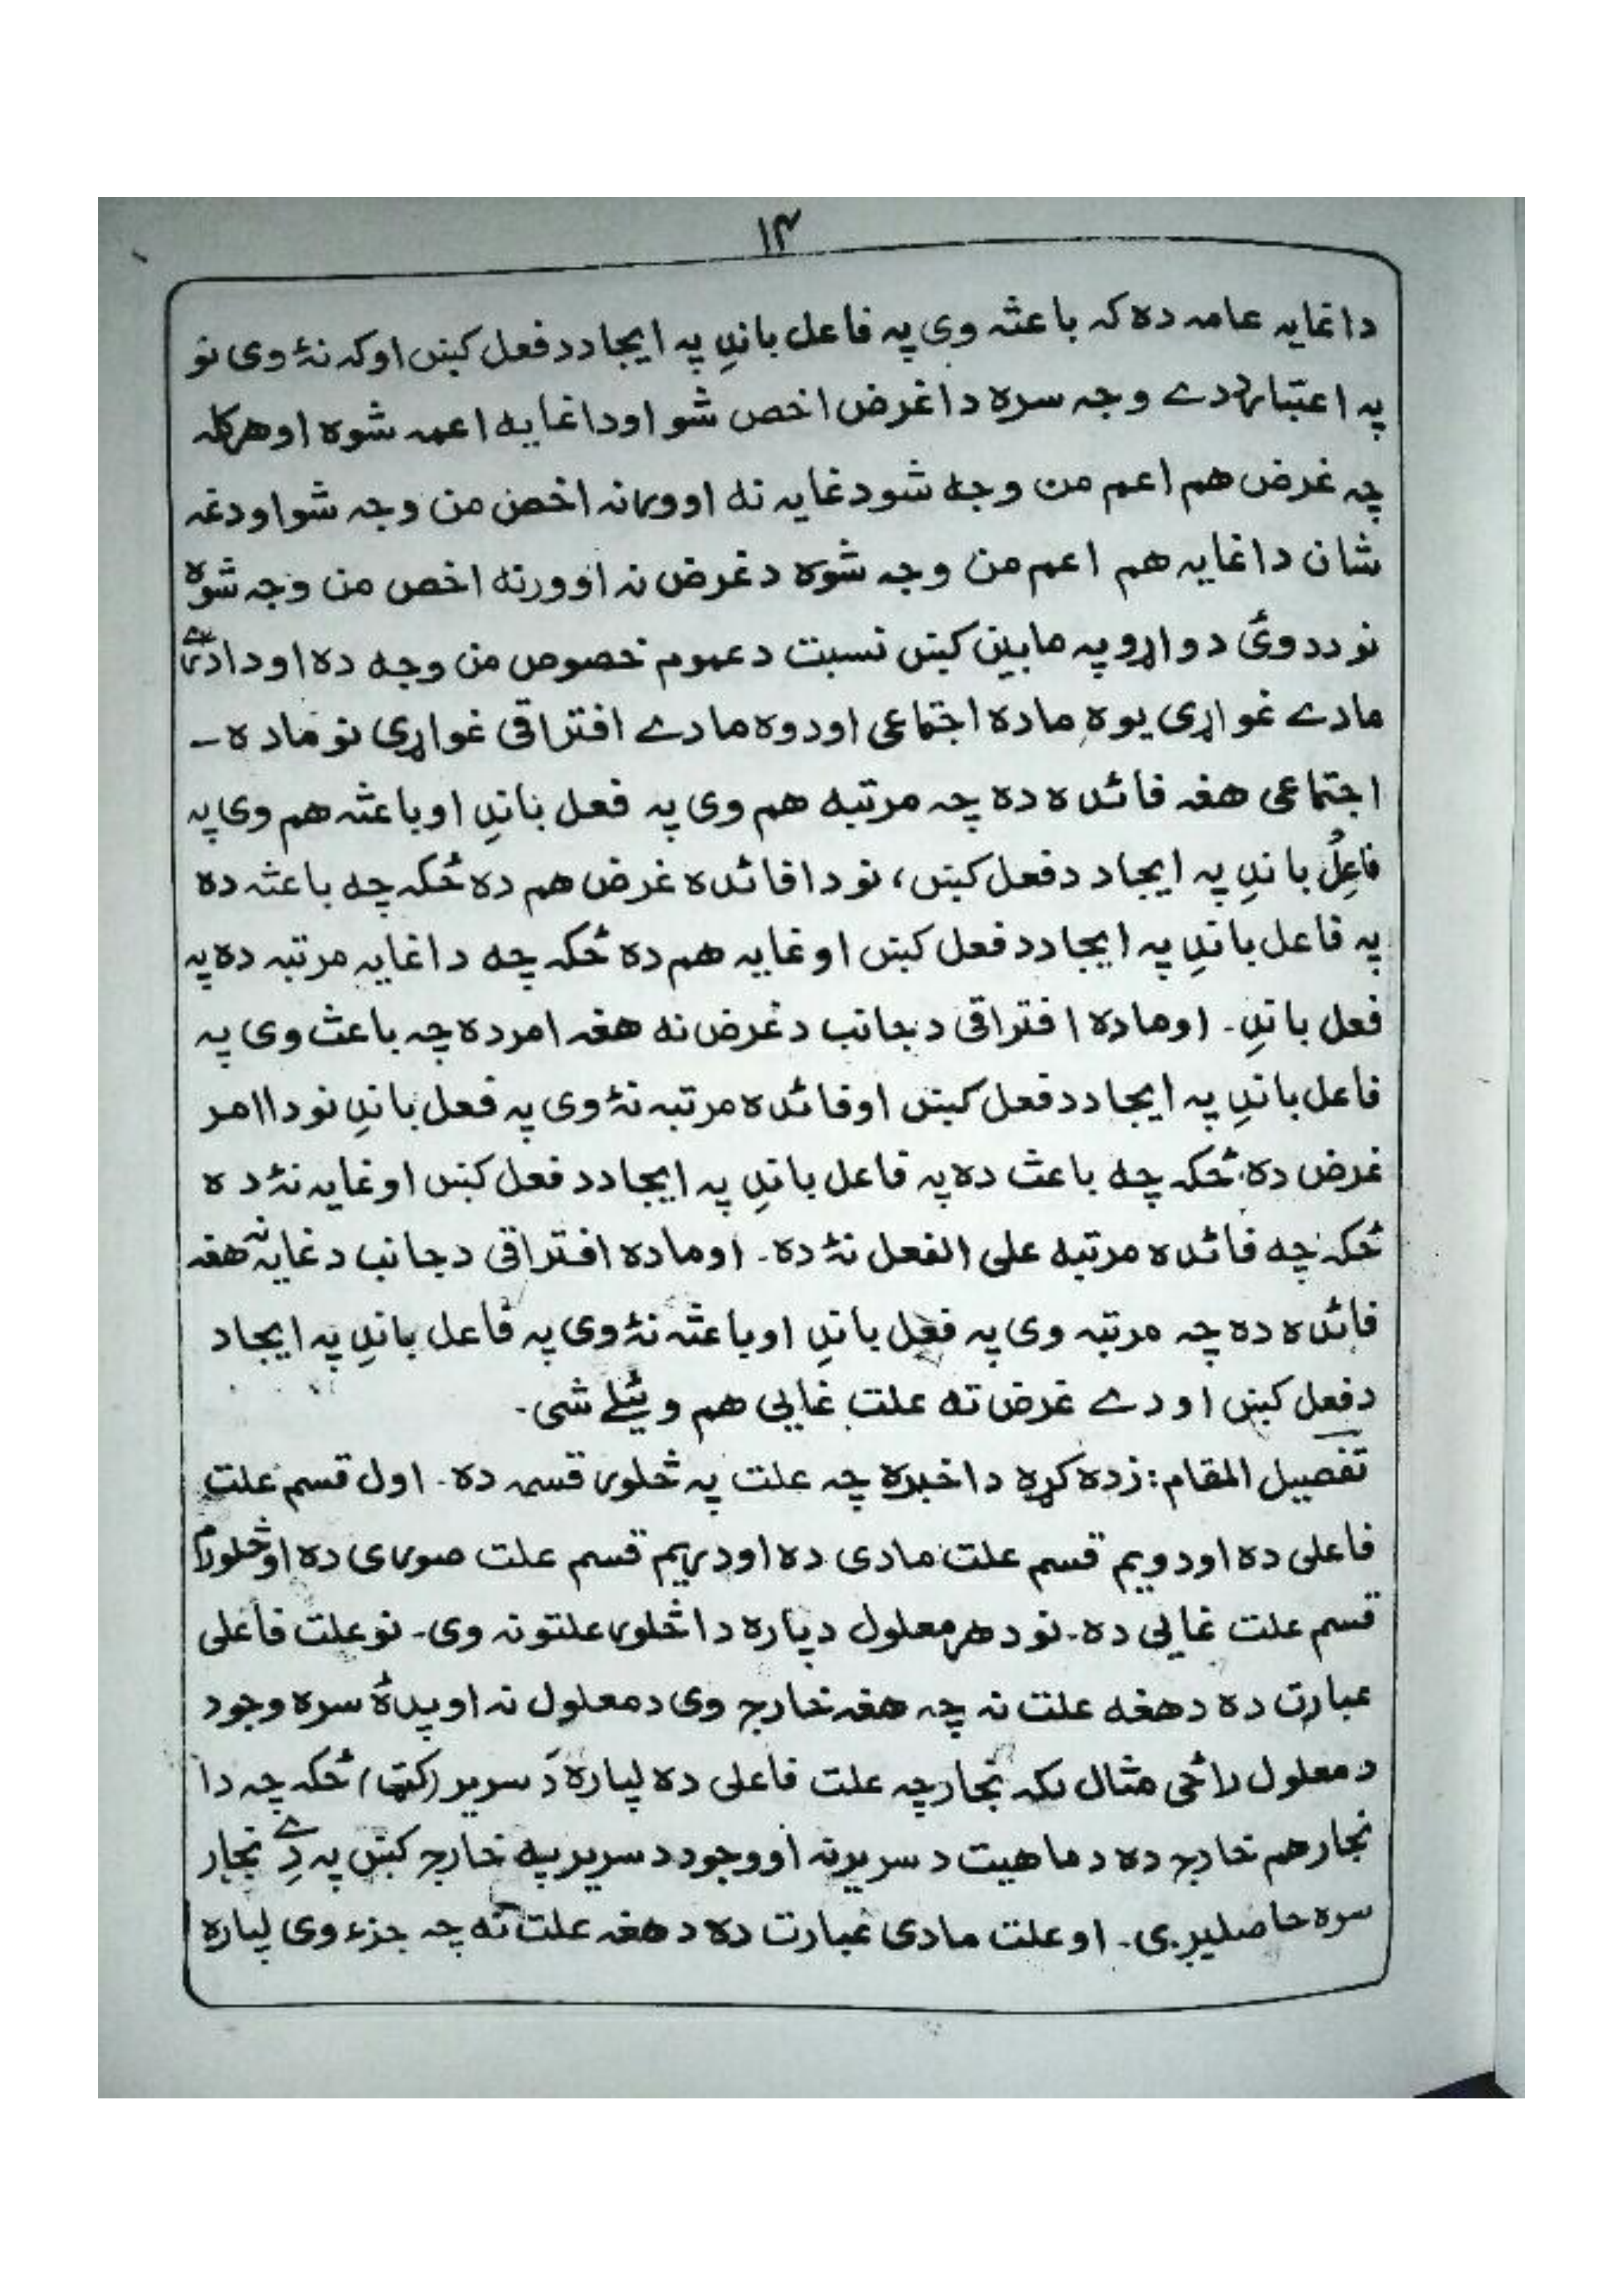 ۱۴
داغایه عامه ده که باعثه وی په فاعل باندِ په ایجاد د فعل کښں اوکه نۀ وی نو
په اعتبار ددے وجه سره داغرض اخص شو اوداغایه اعمه شوه اوهرکله
چه غرض هم اعم من وجه شو دغایه نه اوورنه اخص من وجه شو اودغه
شان داغایه هم اعم من وجه شوه دغرض نه اوورته اخص من وجه شوه
نو ددوئ دواړو په مابین کښں نسبت دعموم خصوص من وجه ده او دا
مادے غواړی یوه ماده اجتماعی اودوه مادے افتراقی غواړی نو ماده ـ
اجتماعی هغه فائده ده چه مرتبه هم وی په فعل باندِ اوباعثه هم وی په
فاعِل باندِ په ایجاد دفعل کښں، نو دا فائده غرض هم ده ځکه چه باعثه ده
په فاعل باندِ په ایجاد دفعل کښں اوغایه هم ده ځکه چه داغایه مرتبه ده په
فعل باندِ۔ اوماده افتراقی دجانب دغرض نه هغه امر ده چه باعث وی په
فاعل باندِ په ایجاد دفعل کښں اوفائده مرتبه نۀ وی په فعل باندِ نو دا امر
غرض ده ځکه چه باعث ده په فاعل باندِ په ایجاد دفعل کښں اوغایه نۀ ده
ځکه چه فائده مرتبه علی الفعل نۀ ده۔ اوماده افتراقی دجانب دغایه نه هغه
فائده ده چه مرتبه وی په فعل باندِ اوباعثه نۀ وی په فاعل باندِ په ایجاد
دفعل کښں اودے غرض ته علت غایی هم وئیلے شی۔
تفصیل المقام: زده کړه داخبره چه علت په څلور قسمه ده۔ اول قسم علت
فاعلی ده اودویم قسم علت مادی ده اودریم قسم علت صوری ده اوڅلورم
قسم علت غایی ده۔ نو دهر معلول دپاره داڅلور علتونه وی۔ نوعلت فاعلی
عبارت ده دهغه علت نه چه هغه خارج وی دمعلول نه اوپدۀ سره وجود
دمعلول راځی مثال لکه نجار چه علت فاعلی ده لپاره دَ سریر (کټ) ځکه چه دا
نجار هم خارج ده دماهیت دسریرنه اووجود دسریر په خارج کښں په دے نجار
سره حاصلیږی۔ اوعلت مادی عبارت ده دهغه علت نه چه جزء وی لپاره